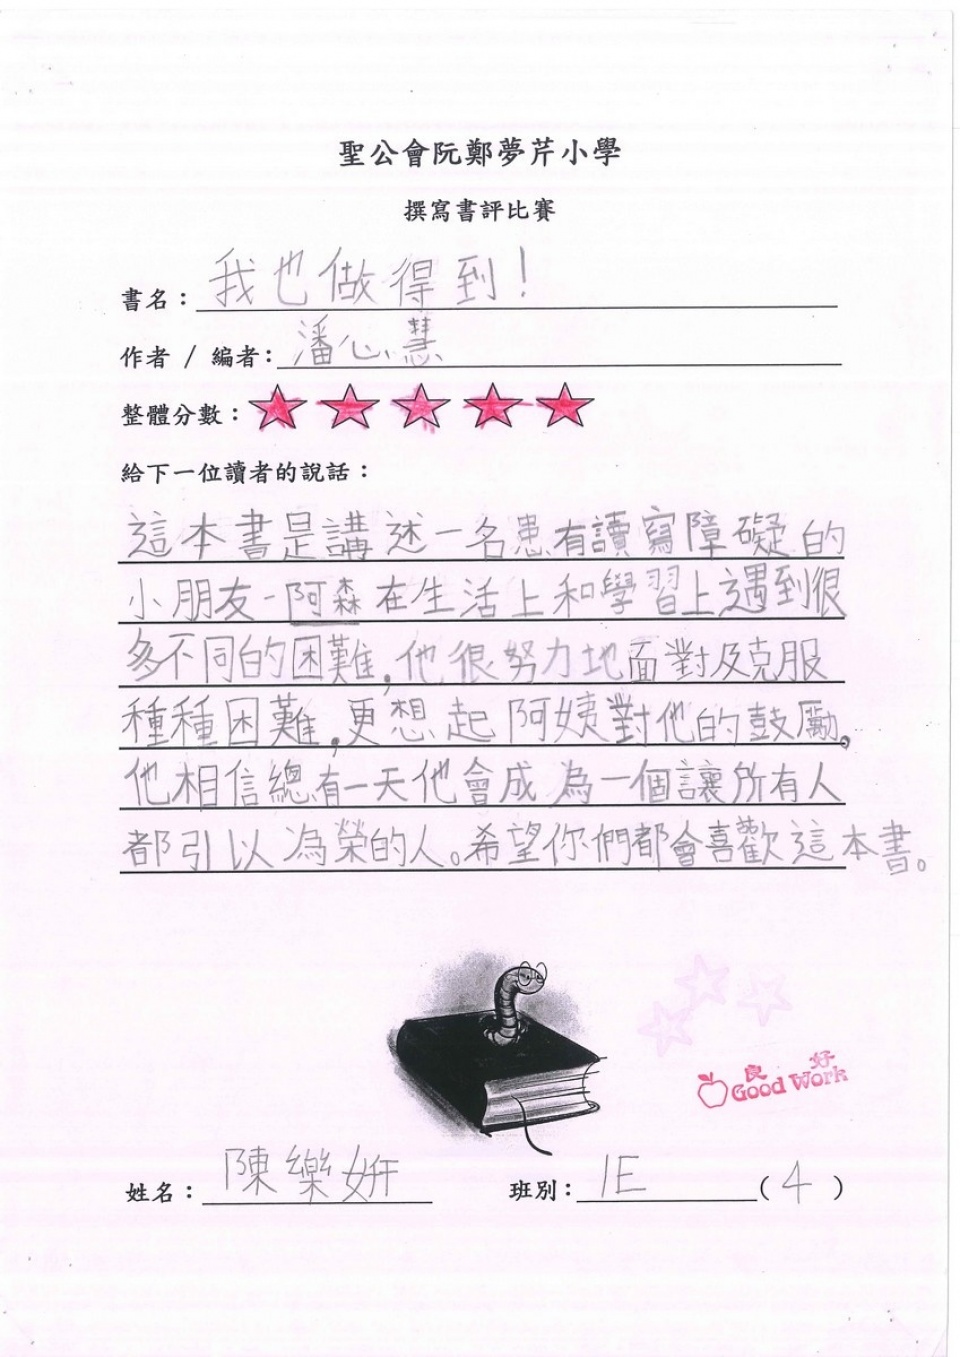 聖公會阮鄭夢芹小學
撰寫書評比賽
書名：我也做得到！
作者 / 編者：潘心慧
整體分數：
給下一位讀者的說話：
這本書是講述一名患有讀寫障礙的
小朋友-阿森在生活上和學習上遇到很
多不同的困難，他很努力地面對及克服
種種困難，更想起阿姨對他的鼓勵。
他相信總有一天他會成為一個讓所有人
都引以為榮的人。希望你們都會喜歡這本書。
良 好
Good Work
姓名：陳樂妍 班別：1E (4)